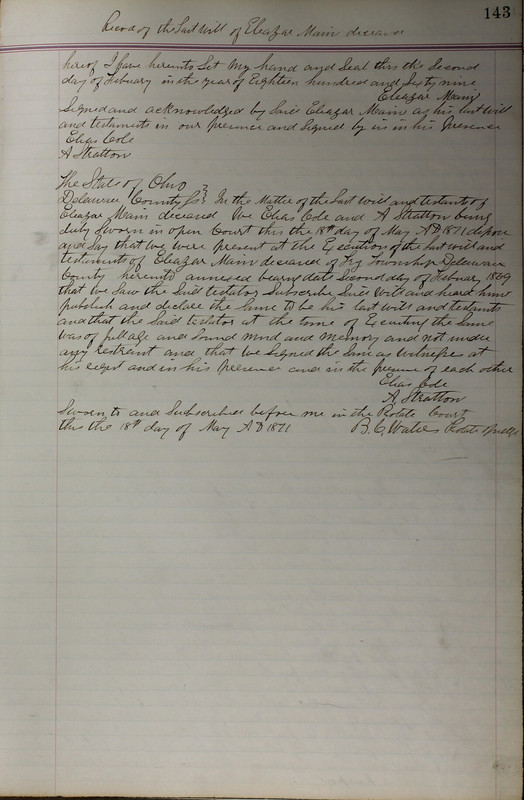 143
Record of the Last Will of Eleazar Main deceased
hereof I have hereunto Set my hand and Seal this the Second
day of Febuary in the year of Eighteen hundred and Sixty nine
Eleazar Main
Signed and acknowledged by Said Eleazar Main as his last will
and testament in our presence and Signed by us in his presence
Elias Cole
A Stratton
The State of Ohio
Delaware County SS In the Matter of the Last will and testament of
Eleazar Main deceased We Elias Cole and A Stratton being
duly Sworn in open Court this the 18th day of May AD 1871 depose
and Say that we were present at the Execution of the last will and
testament of Eleazar Main deceased of Township Delaware
County hereunto annexed bearing date Second day of Febuary 1869
that we Saw the Said testator Subscribe Said will and heard him
publish and declare the Same to be his last will and testament
and that the Said testator at the time of Executing the Same
was of full age and Sound Mind and Memory and not under
any restraint and that we Signed the Same as witnesses at
his request and in his presence and in the presence of each other
Elias Cole
A. Stratton
Sworn to and Subscribed before me in the Probate Court
this the 18th day of May AD 1871 B. C. Waters Probate Judge